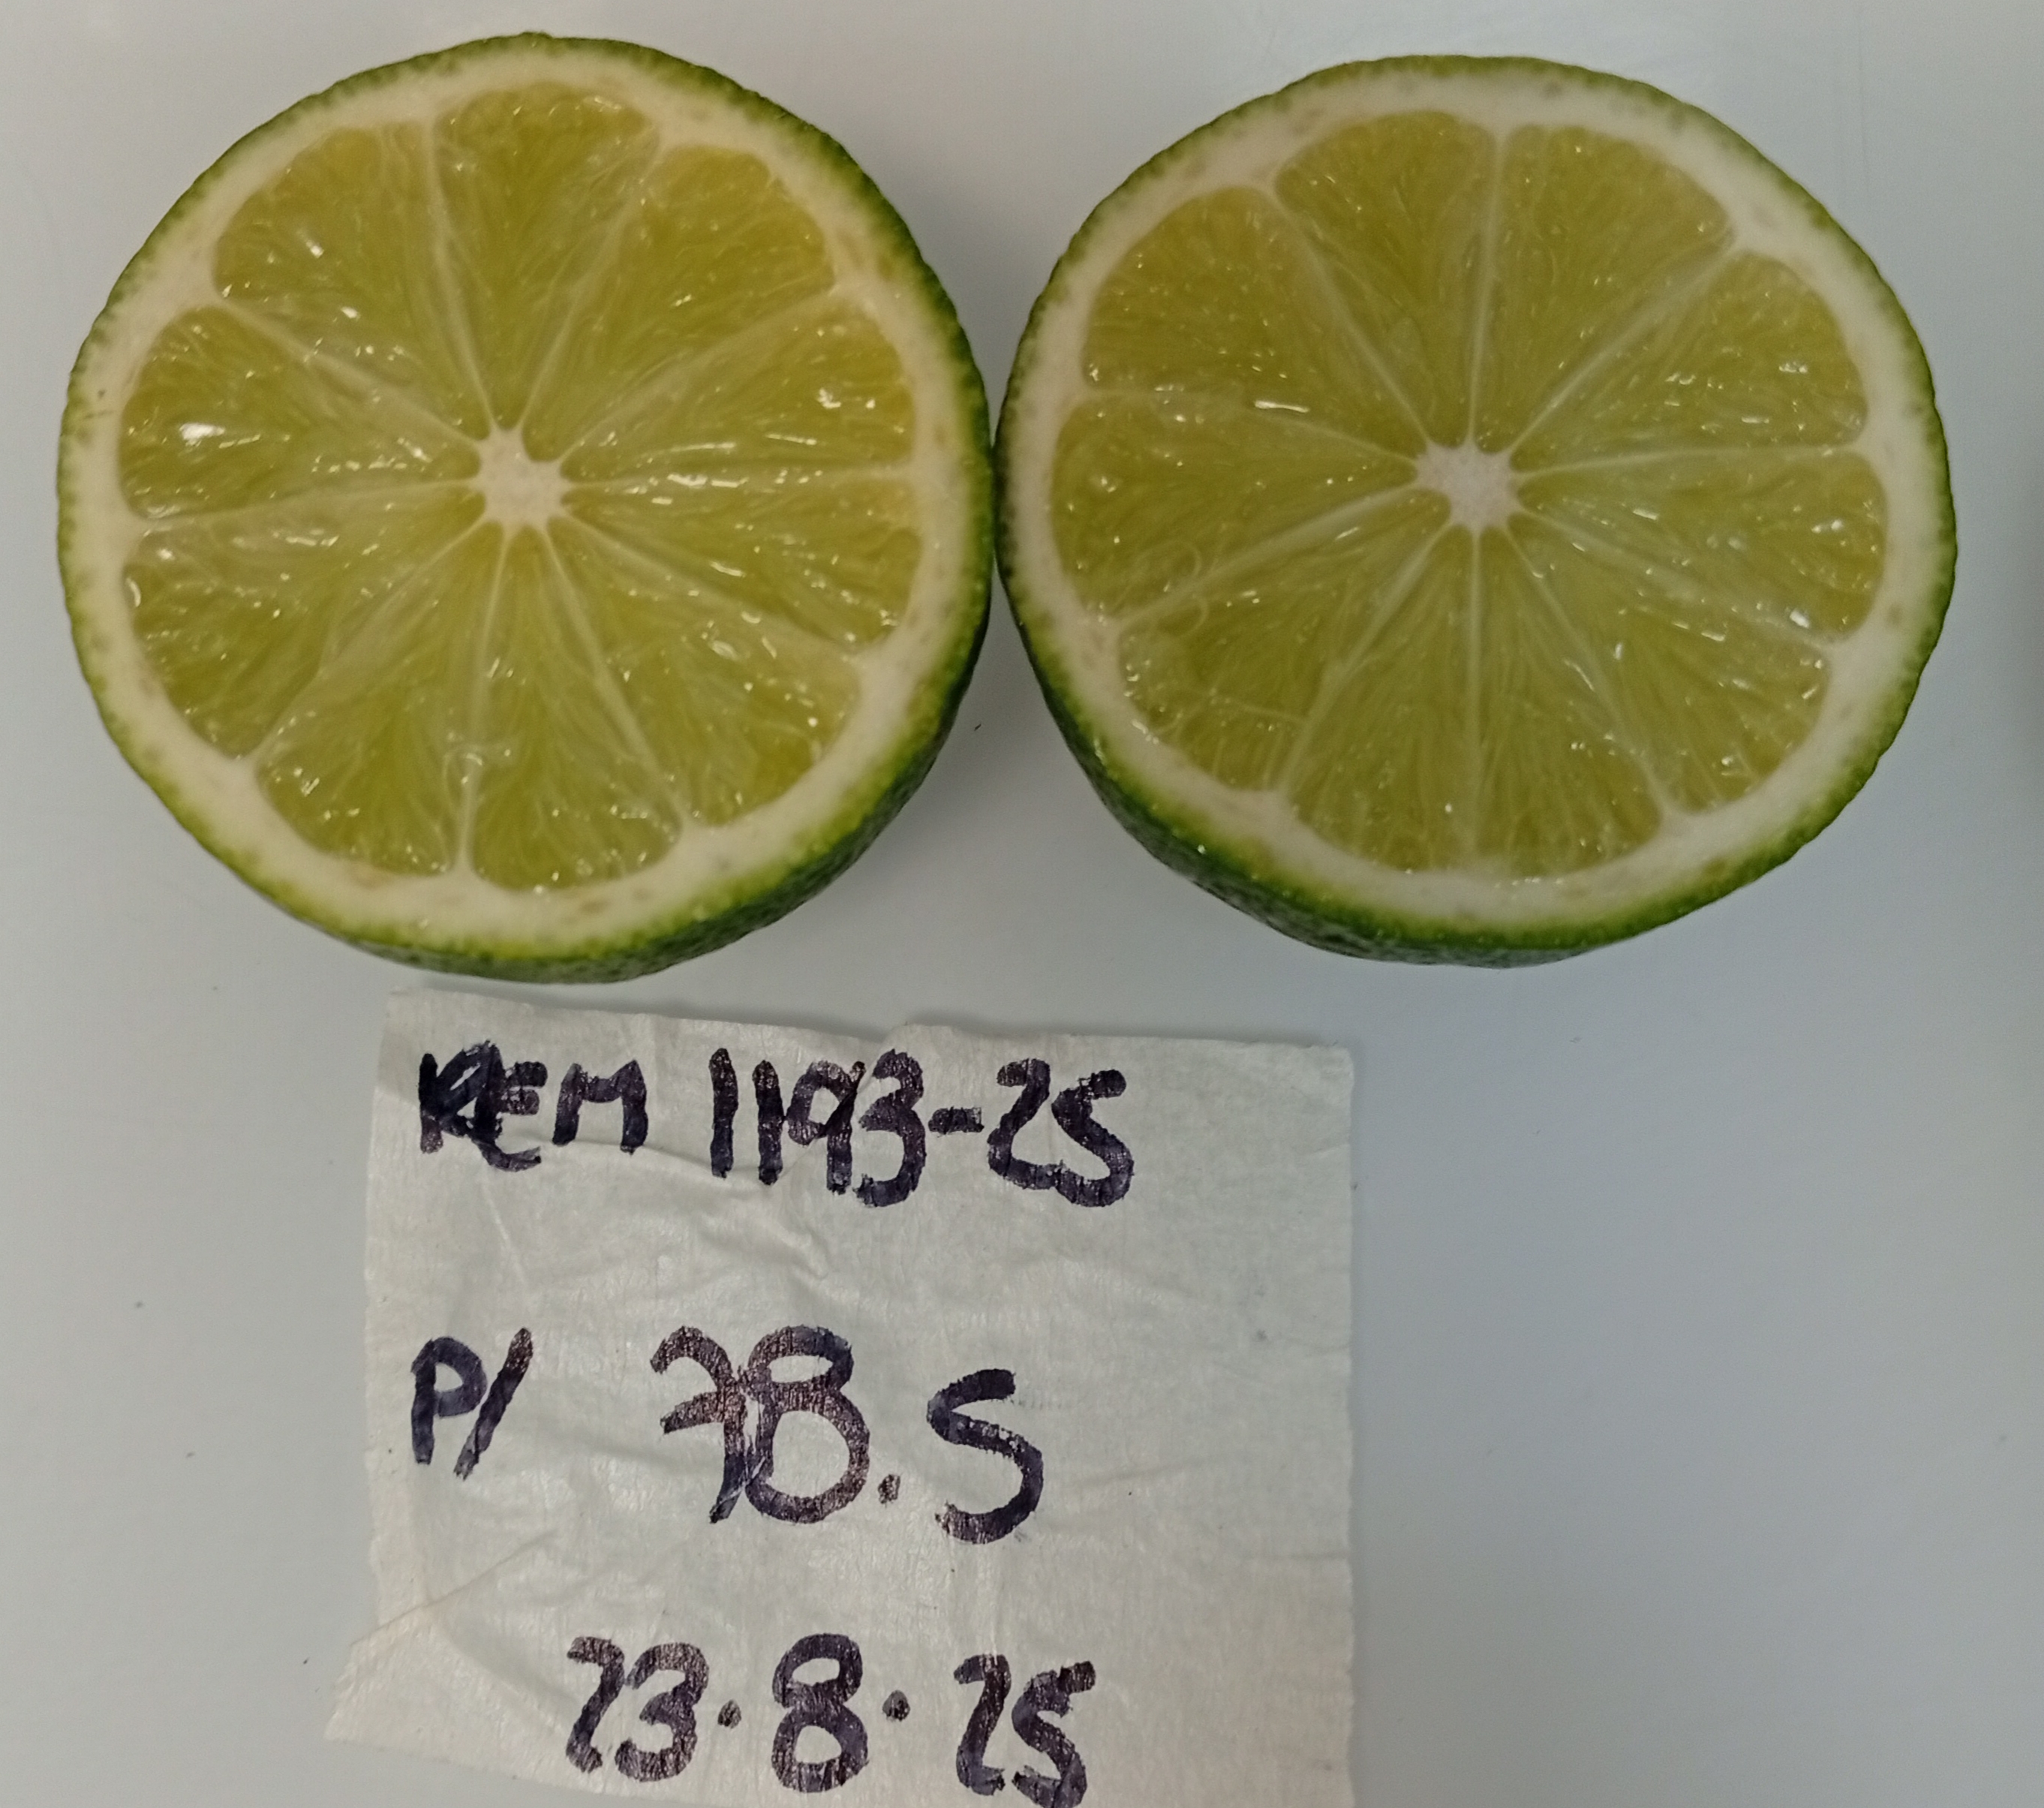 REM 1193-25
P/ 78.5
23.8.25